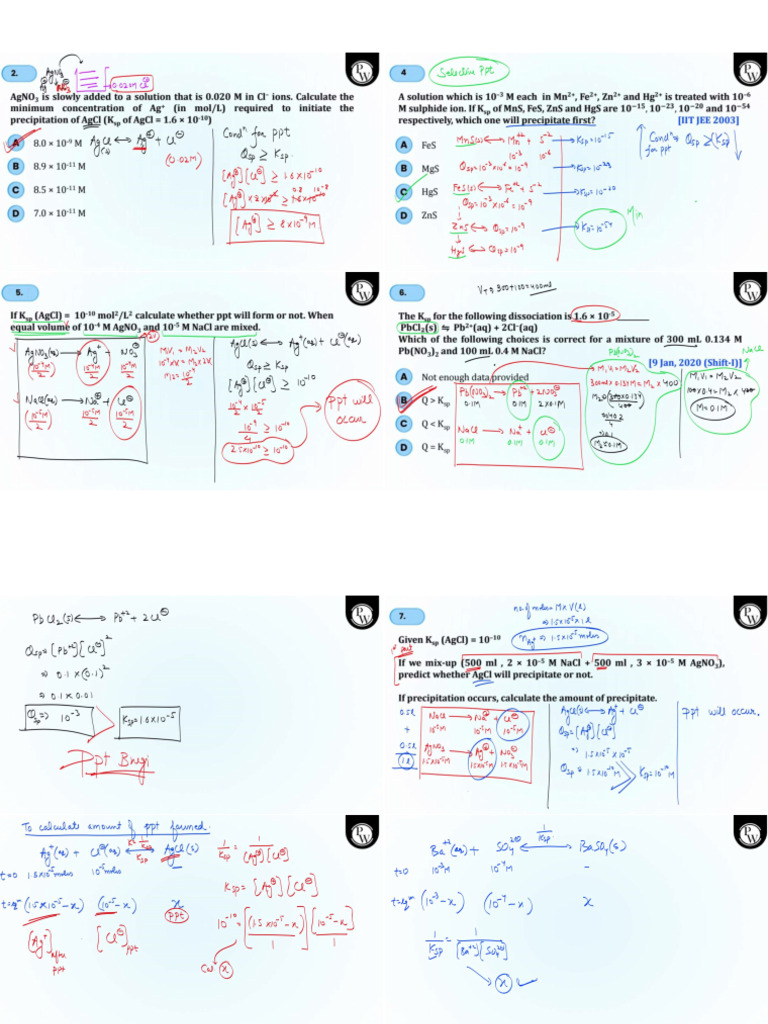 2.
AgNO₃
Ag⁺ NO₃
0.020M Cl⊖
AgNO₃ is slowly added to a solution that is 0.020 M in Cl⁻ ions. Calculate the
minimum concentration of Ag⁺ (in mol/L) required to initiate the
precipitation of AgCl (Ksp of AgCl = 1.6 × 10⁻¹⁰)
A 8.0 × 10⁻⁹ M
B 8.9 × 10⁻¹¹ M
C 8.5 × 10⁻¹¹ M
D 7.0 × 10⁻¹¹ M
AgCl(s) ⟷ Ag⊕ + Cl⊖
(0.02M)
Condⁿ for ppt
Qsp ≥ Ksp
[Ag⊕][Cl⊖] ≥ 1.6×10⁻¹⁰
[Ag⊕] ≥ 8×10⁻⁹ M
4
Selective ppt
A solution which is 10⁻³ M each in Mn²⁺, Fe²⁺, Zn²⁺ and Hg²⁺ is treated with 10⁻⁶
M sulphide ion. If Ksp of MnS, FeS, ZnS and HgS are 10⁻¹⁵, 10⁻²³, 10⁻²⁰ and 10⁻⁵⁴
respectively, which one will precipitate first? [IIT JEE 2003]
A FeS
B MgS
C HgS
D ZnS
MnS(s) ⟷ Mn⁺² + S⁻²
10⁻³ 10⁻⁶
Qsp=10⁻³×10⁻⁶=10⁻⁹
FeS(s) ⟷ Fe⁺² + S⁻²
Qsp=10⁻³×10⁻⁶=10⁻⁹
ZnS ⟷ Qsp=10⁻⁹
HgS ⟷ Qsp=10⁻⁹
Ksp=10⁻¹⁵
Ksp=10⁻²³
Ksp=10⁻²⁰
Ksp=10⁻⁵⁴
Min
Condⁿ for ppt Qsp ≥ Ksp
5.
If Ksp (AgCl) = 10⁻¹⁰ mol²/L² calculate whether ppt will form or not. When
equal volume of 10⁻⁴ M AgNO₃ and 10⁻⁵ M NaCl are mixed.
AgNO₃(aq) → Ag⁺ + NO₃⊖
(10⁻⁴M/2) 10⁻⁴M/2 10⁻⁴M/2
NaCl(aq) → Na⊕ + Cl⊖
(10⁻⁵M/2) 10⁻⁵M/2 10⁻⁵M/2
M₁V₁ = M₂V₂
10⁻⁴×V = M₂×2V
M₂ = 10⁻⁴/2
AgCl(s) ⟷ Ag⁺(aq) + Cl⊖(aq)
Qsp ≥ Ksp
[Ag⊕][Cl⊖] ≥ 10⁻¹⁰
10⁻⁴/2 × 10⁻⁵/2
10⁻⁹/4 ≥ 10⁻¹⁰
2.5×10⁻¹⁰ ≥ 10⁻¹⁰
ppt will occur
6.
V₂ = 300+100=400ml
The Ksp for the following dissociation is 1.6 × 10⁻⁵
PbCl₂(s) ⇌ Pb²⁺(aq) + 2Cl⁻(aq)
Which of the following choices is correct for a mixture of 300 mL 0.134 M
Pb(NO₃)₂ and 100 mL 0.4 M NaCl?
[9 Jan, 2020 (Shift-I)]
A Not enough data provided
B Q > Ksp
C Q < Ksp
D Q = Ksp
Pb(NO₃)₂ → Pb⁺² + 2NO₃⊖
0.1M 0.1M 2×0.1M
NaCl → Na⁺ + Cl⊖
0.1M 0.1M 0.1M
Pb(NO₃)₂
M₁V₁=M₂V₂
300×0.134=M₂×400
M₂=0.1M
NaCl
M₁V₁=M₂V₂
100×0.4=M₂×400
M₂=0.1M
PbCl₂(s) ⟷ Pb⁺² + 2Cl⊖
Qsp=[Pb⁺²][Cl⊖]²
⇒ 0.1×(0.1)²
⇒ 0.1×0.01
Qsp ⇒ 10⁻³
Ksp=1.6×10⁻⁵
Ppt Bnegi
7.
no. of moles = M×V(l)
⇒ 1.5×10⁻⁵×1l
nAg⁺ ⇒ 1.5×10⁻⁵ moles
Given Ksp (AgCl) = 10⁻¹⁰
If we mix-up (500 ml , 2 × 10⁻⁵ M NaCl + 500 ml , 3 × 10⁻⁵ M AgNO₃),
predict whether AgCl will precipitate or not.
If precipitation occurs, calculate the amount of precipitate.
0.5l
+
0.5l
1l
NaCl → Na⊕ + Cl⊖
10⁻⁵M 10⁻⁵M 10⁻⁵M
AgNO₃ → Ag⊕ + NO₃⊖
1.5×10⁻⁵M 1.5×10⁻⁵M 1.5×10⁻⁵M
AgCl(s) ⟷ Ag⁺ + Cl⊖
Qsp=[Ag⊕][Cl⊖]
⇒ 1.5×10⁻⁵×10⁻⁵
Qsp ⇒ 1.5×10⁻¹⁰
Ksp=10⁻¹⁰ M
ppt will occur.
To calculate amount of ppt formed.
Ag⁺(aq) + Cl⊖(aq) ⟷ AgCl(s)
K = 1/Ksp
t=0 1.5×10⁻⁵ moles 10⁻⁵ moles –
t=eqᵐ (1.5×10⁻⁵-x) (10⁻⁵-x) x
ppt
[Ag⁺] after ppt
[Cl⊖] ppt
1/Ksp = 1/[Ag⊕][Cl⊖]
Ksp = [Ag⊕][Cl⊖]
10⁻¹⁰ = [(1.5×10⁻⁵-x)/1][(10⁻⁵-x)/1]
Cal x
Ba⁺²(aq) + SO₄²⊖ ⟷ BaSO₄(s)
1/Ksp
t=0 10⁻³M 10⁻⁴M –
t=eqᵐ (10⁻³-x) (10⁻⁴-x) x
1/Ksp = 1/[Ba⁺²][SO₄²⊖]
x